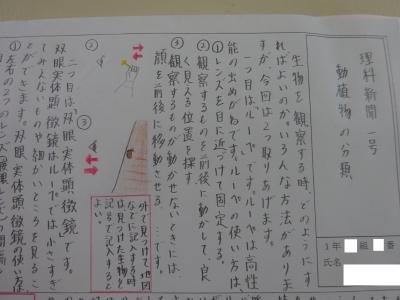 理科新聞 一号
動植物の分類
1年 組 番
氏名
生物を観察する時、どのようにす
ればよいのか、いろんな方法がありま
すが、今回は2つ取りあげます。
一つ目はルーペです。ルーペは高性
能の出めがねです。ルーペの使い方は、
①レンズを目に近づけて固定する。
②観察するものを前後に動かして、良
く見える位置を探す。
③観察するものが動かせないときには、
顔を前後に移動させる。…です。
外で見つけて、地図
などに記入する時
は見つけた生物を
記号で記入すると
よい。
②
③
二つ目は「双眼実体顕微鏡」です。
双眼実体顕微鏡はルーペでは小さすぎ
てみえないものや細かいところを見るこ
とができます。双眼実体顕微鏡の使い方は
①左右の2つのレンズ